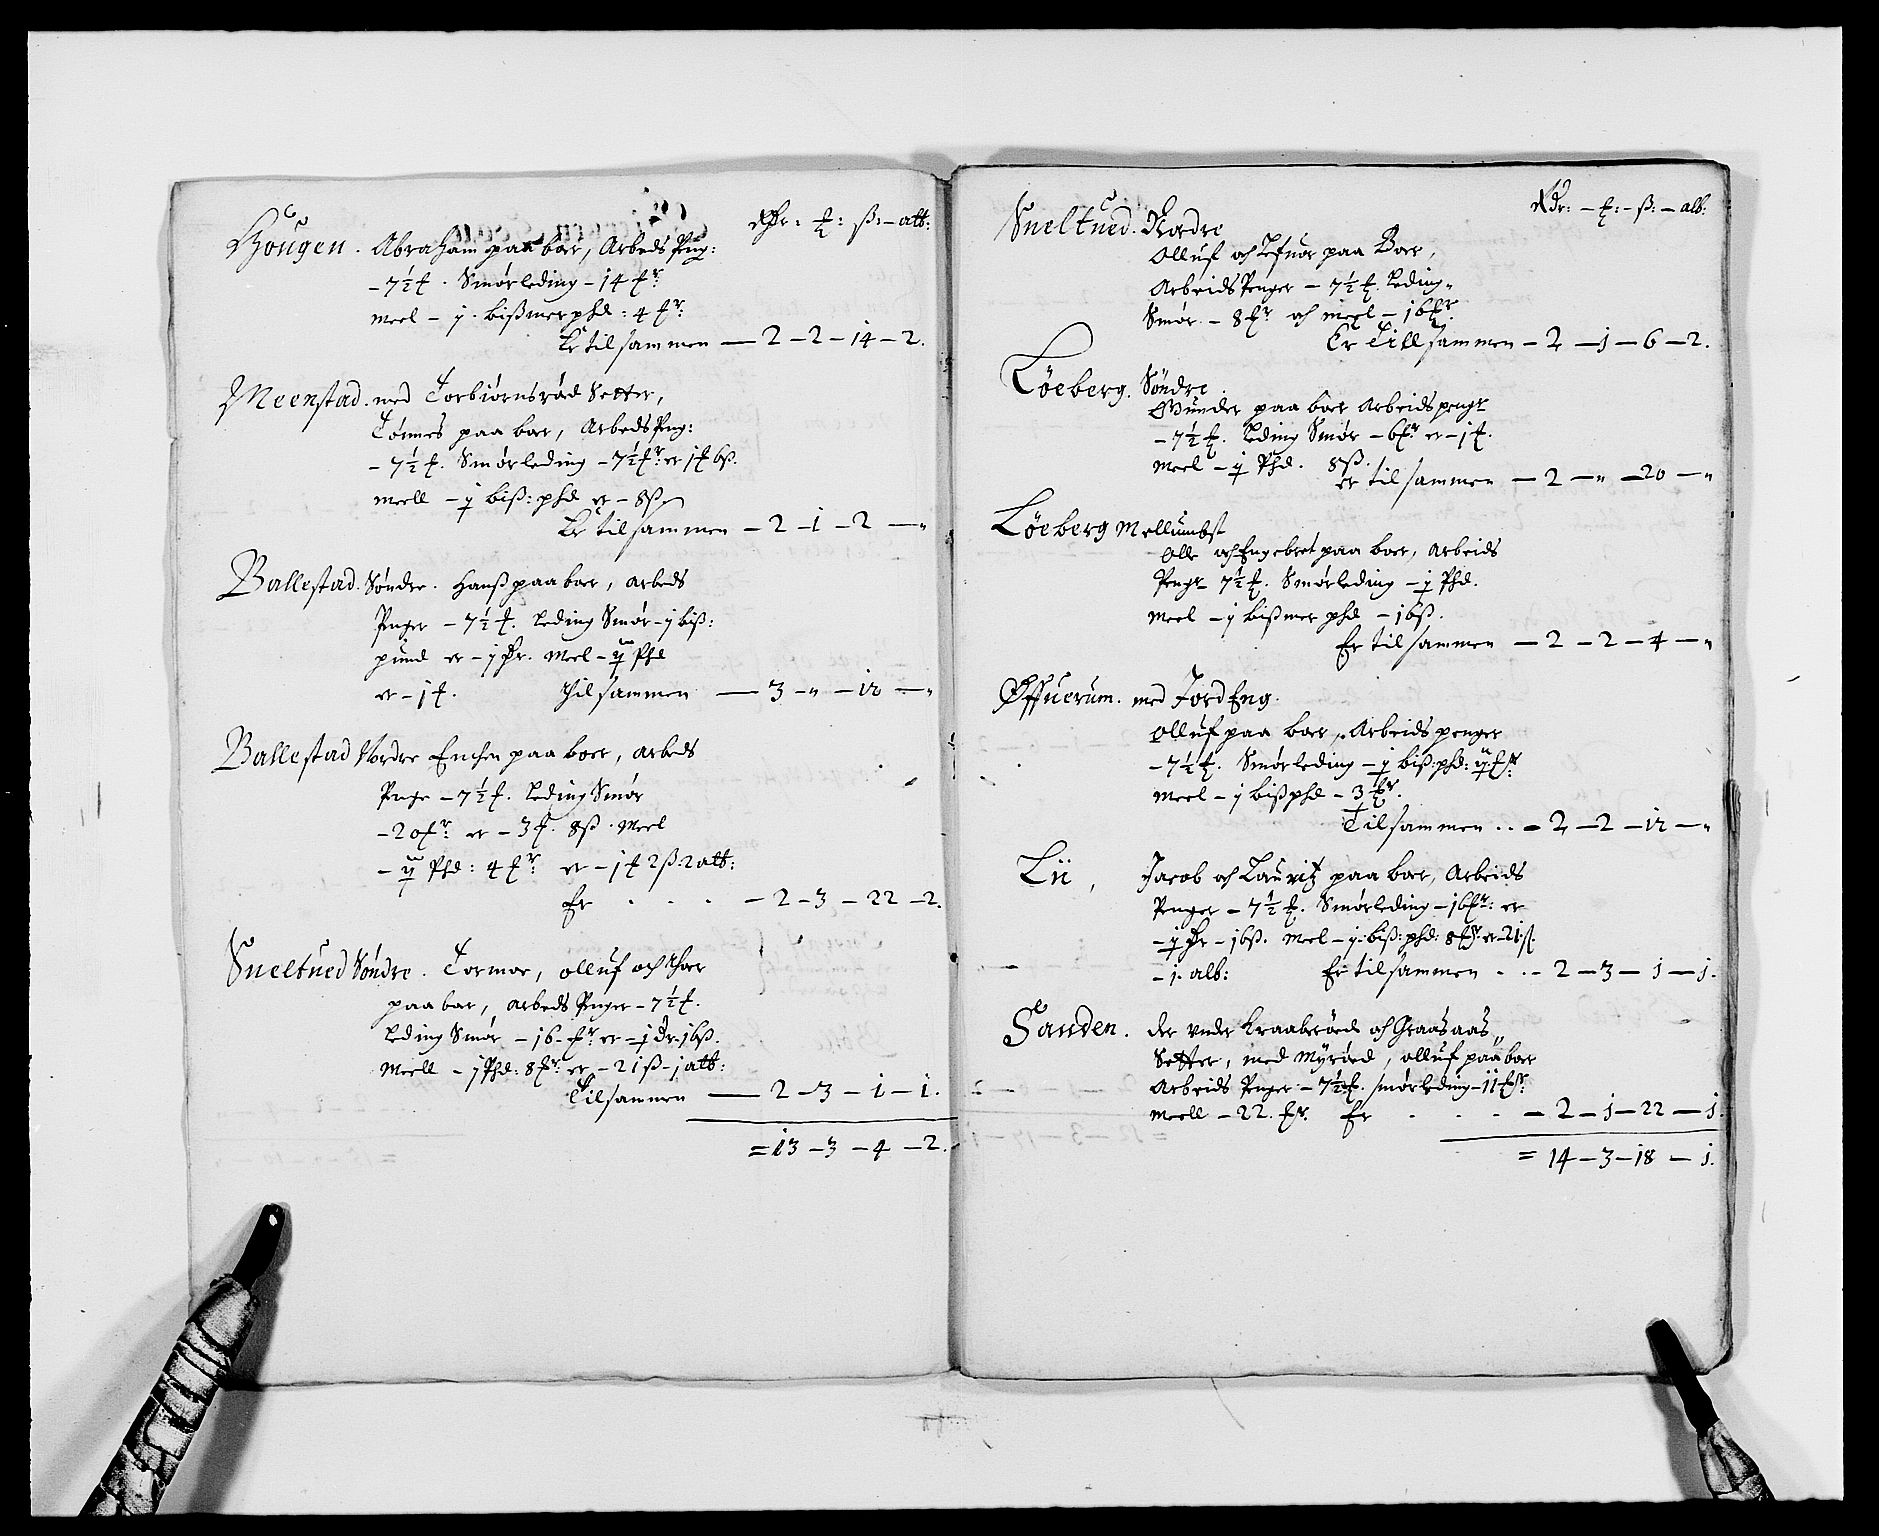 Rdr: ℔: ß: – alb:
Hougen. Abraham paa boer, Arbeds Png:
– 7½ ℔. Smørleding – 14 ℔r
meel – j. bißmerphd: 4 ℔r:
Er tilsammen — 2 – 2 – 14 – 2.
Meenstad. med Torbiørnsrød Setter,
Tønnes paa boer, Arbeds Png:
– 7½ ℔. Smørleding – 7½ ℔r: er 1 ℔ 6 ß.
meell – j biß: phd er – 8 ß
Er tilsammen – 2 – 1 – 2 — „
Ballestad. Søndre. Hanß paa boer, arbeds
Penger – 7½ ℔. Leding Smør – j biß:
pund er – j Dr. Meel – ij Phd
er – 1 ℔. Tilsammen — 3 – „ – 12 — „
Ballestad Nordre Ench​en paa boer, arbeds
Penge – 7½ ℔. Leding Smør
– 20 ℔r: er – 3 ℔. 8 ß. Meel
– ij Phd: 4 ℔r er – 1 ℔ 2 ß 2 alb:
Er . . . – 2 – 3 – 22 – 2.
Sneltued Søndre. Tormoe, olluf och Thoer
paa boer, arbeds Penger – 7½ ℔.
Leding Smør – 16 ℔r er – 1 Dr. 16 ß.
Meell – j Phd: 8 ℔r er – 21 ß – j alb:
Tilsammen — 2 – 3 – 1 – 1.
= 13 – 3 – 4 – 2.
Rdr: – ℔: – ß: – alb:
Sneltued. Nordre
Olluf och paa Boer,
Arbeids Penger – 7½ ℔. Leding„
Smør – 8 ℔r och meel – 16 ℔r
Er Tillsammen – 2 – 1 – 6 – 2.
Løeberg. Søndre
Gunder paa boer Arbeids pengr
– 7½ ℔. Leding Smør – 6 ℔r er – 1 ℔.
Meel – j Phd. 8 ß.
er tilsammen – 2 – „ – 20 – „
Løeberg Mellumbst
Olle och Engebret paa boer, arbeids
Pengr 7½ ℔. Smørleding – j Phd.
Meel – j bißmer phd – 16 ß.
Er tilsammen – 2 – 2 – 4 – „
Øffuerum. med Jord Eng.
Olluf paa boer, Arbeids penger
– 7½ ℔. Smørleding – j biß: phd: ij ℔r
Meel – j biß phd – 3 ℔r.
Tilsammen . . – 2 – 2 – 12 – „
Lii, Jacob och Lauritz paa boer, Arbeids
Penger – 7½ ℔. Smørleding – 16 ℔r: er
– j Dr – 16 ß. Meel – j biß: phd: 8 ℔r er – 21 ß.
– 1. alb: Er tilsammen . . – 2 – 3 – 1 – 1.
Sanden. der vnder Kraaberød och Graasaas„
Setter, med Myrød, olluf paa boer
Arbeids Penger – 7½ ℔. smørleding – 11 ℔r
Meell – 22. ℔r. Er . . . – 2 – 1 – 22 – 1
= 14 – 3 – 18 – 1.